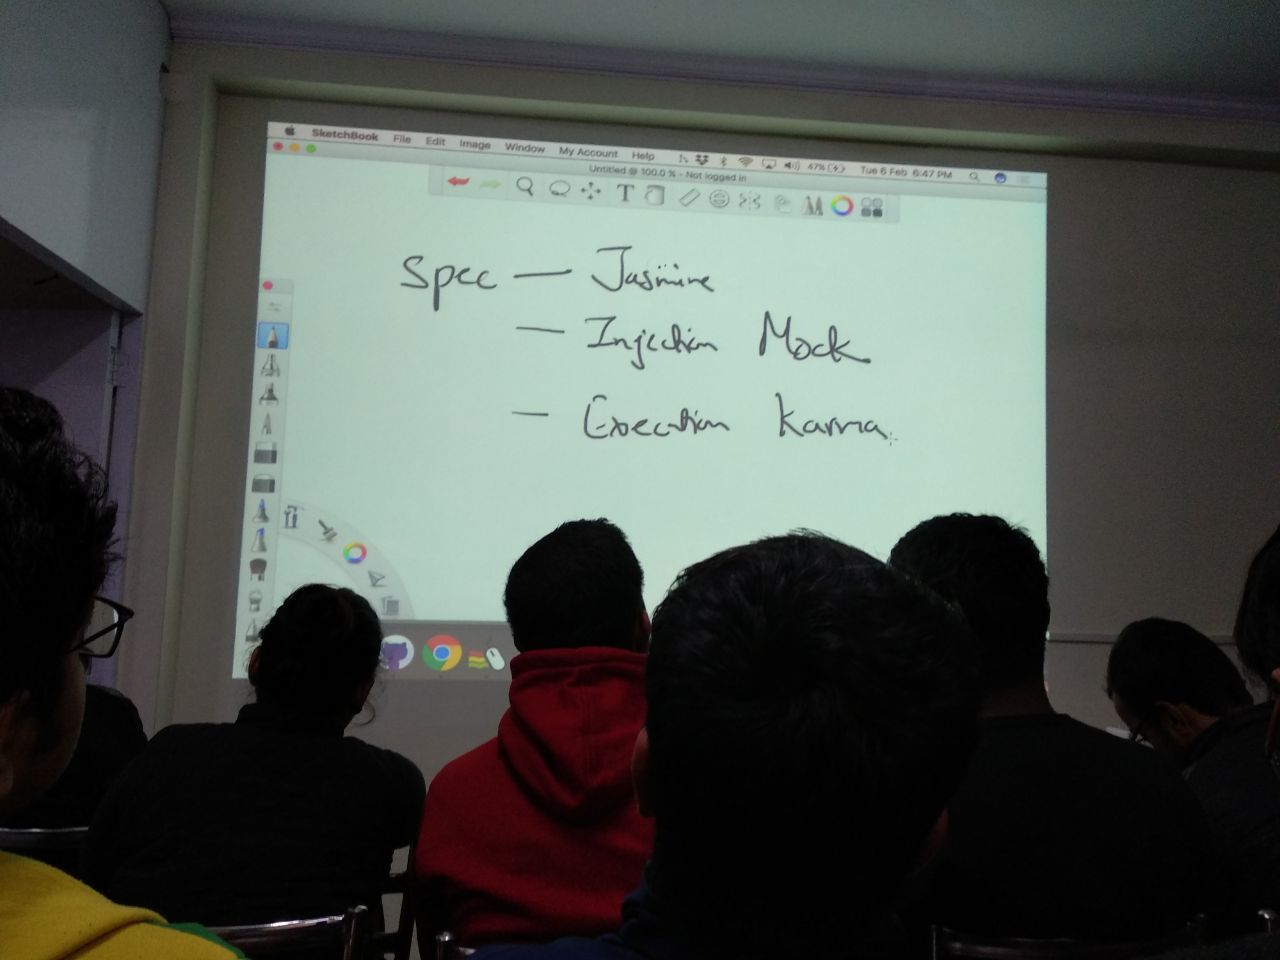 SketchBook File Edit Image Window My Account Help 47% Tue 6 Feb 6:47 PM
Untitled @ 100.0 % - Not logged in
T
Spec — Jasmine
— Injection Mock
— Execution Karma